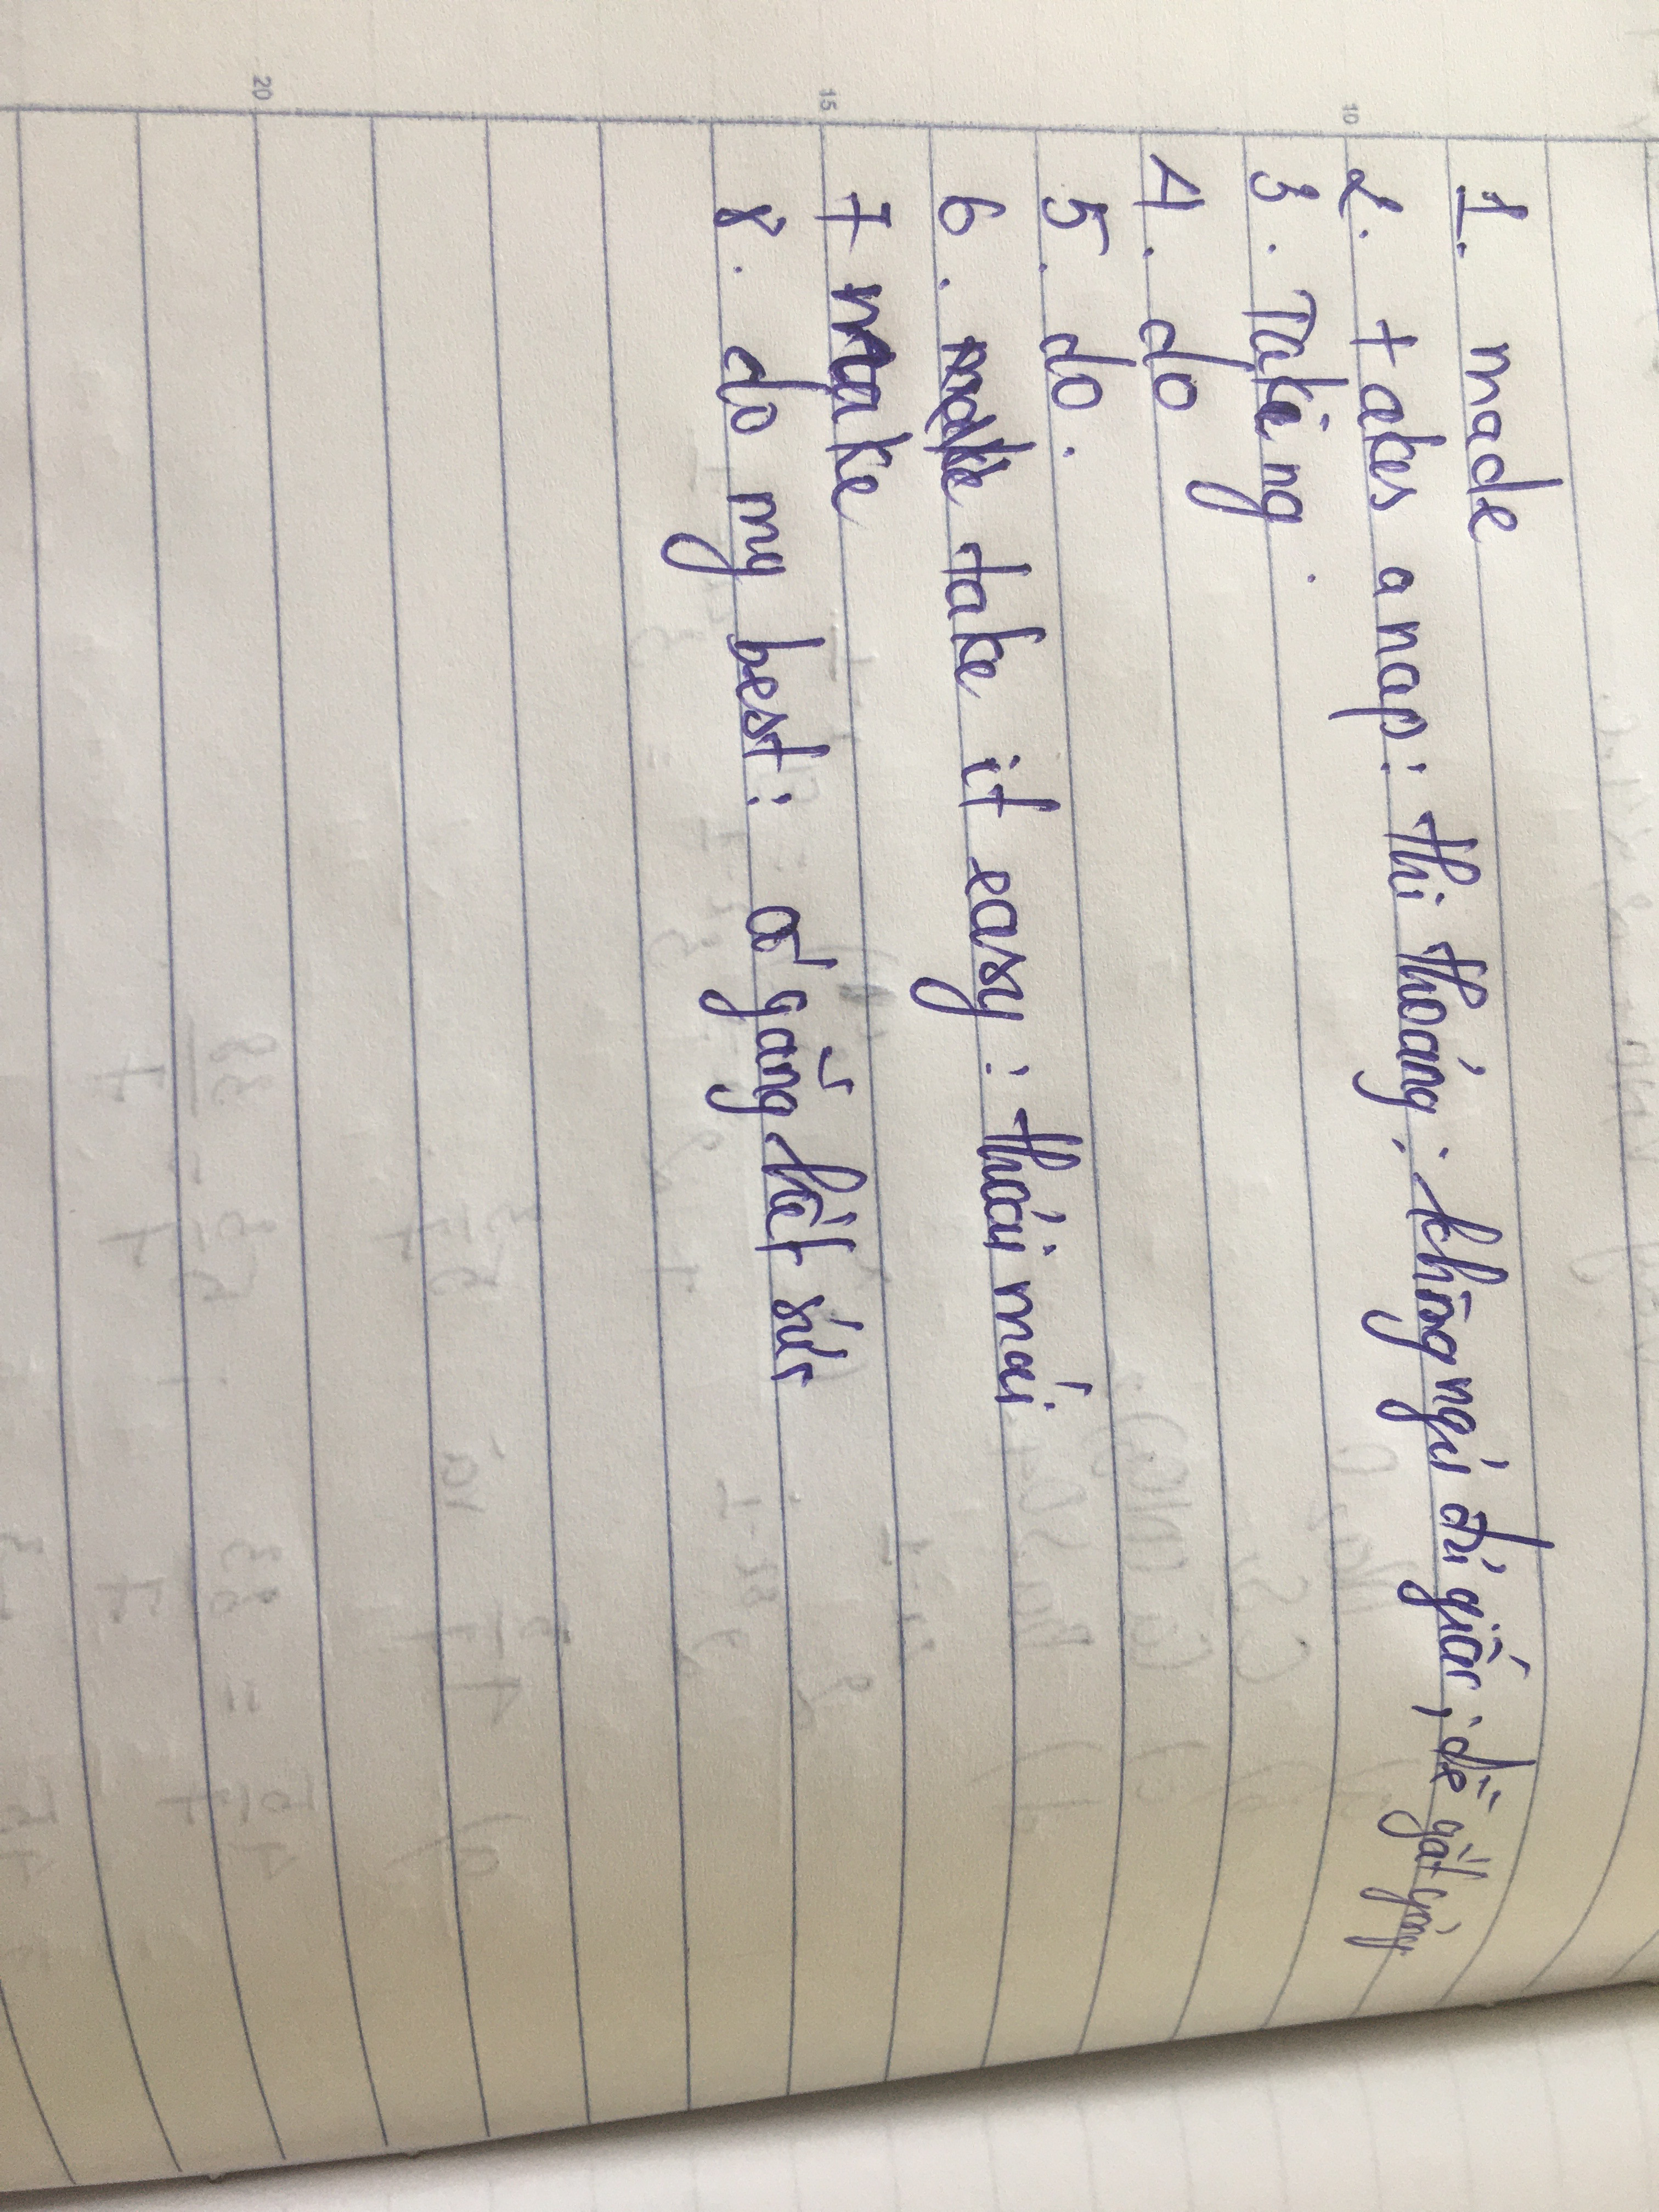 1. made
2. takes a nap: thi thoảng: không ngủ đủ giấc, dễ gắt gỏng
3. Taking.
4. do
5. do.
6. take it easy: thoải mái
7 make
8. do my best: cố gắng hết sức
10
15
20